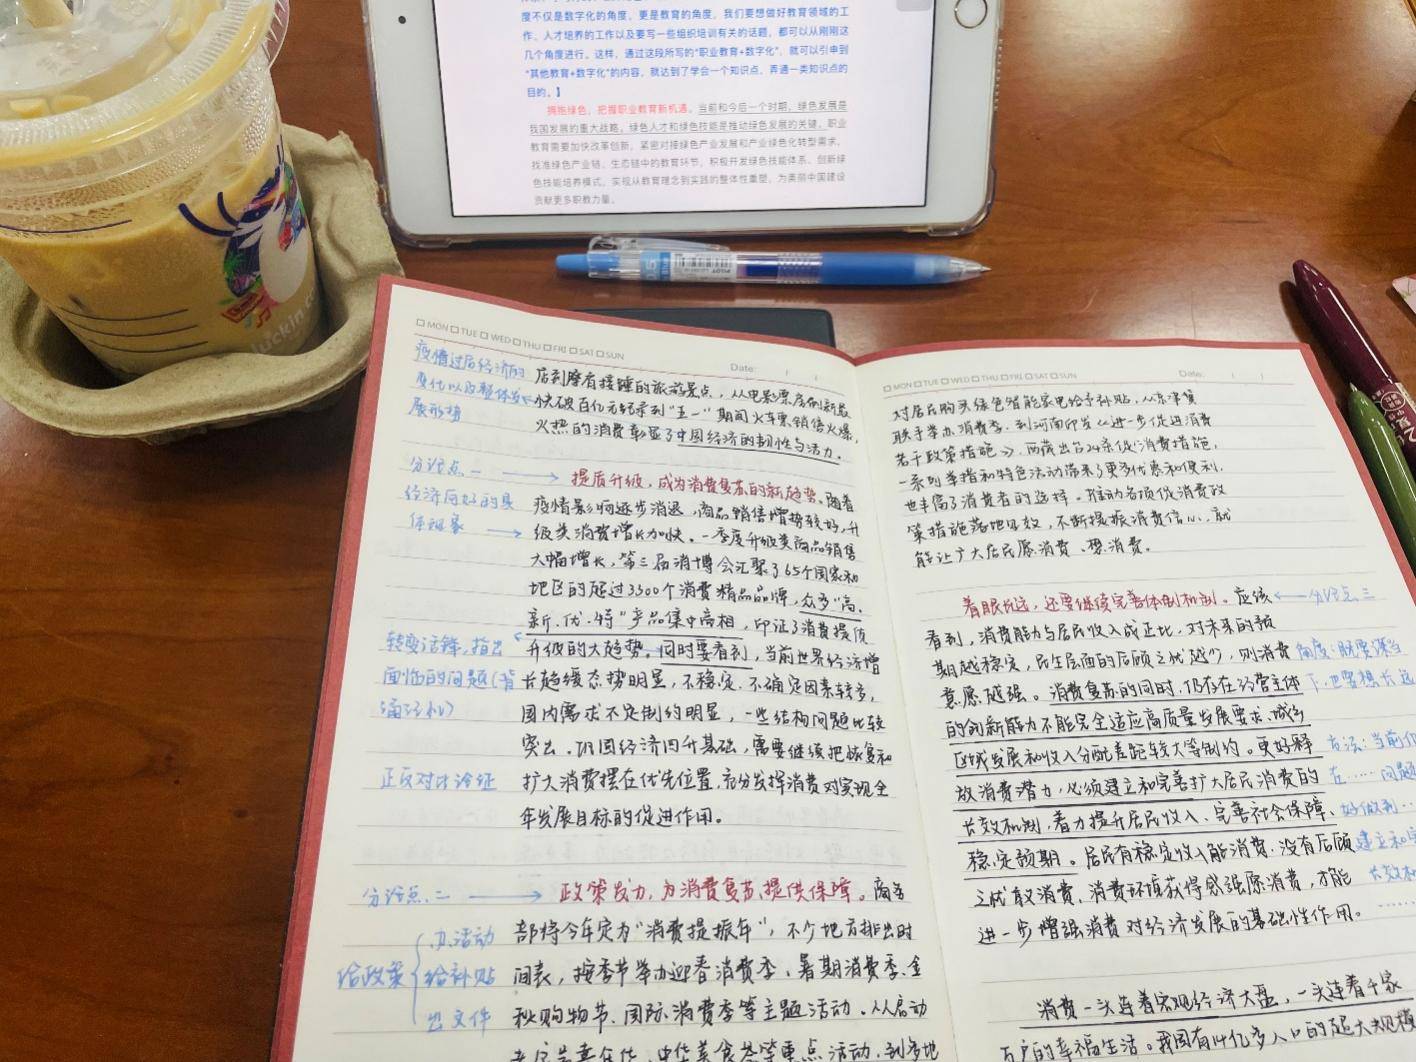 度不仅是数字化的角度，更是教育的角度，我们要想做好教育领域的工
作、人才培养的工作以及要写一些组织培训有关的话题，都可以从刚刚这
几个角度进行。这样，通过这段所写的“职业教育+数字化”，就可以引申到
“其他教育+数字化”的内容，就达到了学会一个知识点，弄通一类知识点的
目的。】
拥抱绿色，把握职业教育新机遇。当前和今后一个时期，绿色发展是
我国发展的重大战略，绿色人才和绿色技能是推动绿色发展的关键。职业
教育需要加快改革创新，紧密对接绿色产业发展和产业绿色化转型需求，
找准绿色产业链、生态链中的教育环节，积极开发绿色技能体系、创新绿
色技能培养模式，实现从教育理念到实践的整体性重塑，为美丽中国建设
贡献更多职教力量。
luckin co
MON TUE WED THU FRI SAT SUN
Date:
疫情过后经济的
变化以及整体发
展形势
店到摩肩接踵的旅游景点，从电影票房刷新最
快破百亿元纪录到“五一”期间火车票销售火爆，
火热的消费彰显了中国经济的韧性与活力。
分论点一
提质升级，成为消费复苏的新趋势。随着
经济向好的具
体现象
疫情影响逐步消退，商品销售增势较好，升
级类消费增长加快。一季度升级类商品销售
大幅增长，第三届消博会汇聚了65个国家和
地区的超过3300个消费精品品牌，众多“高、
新、优、特”产品集中亮相，印证了消费提质
转变话锋，指出
面临的问题（普
遍经机）
升级的大趋势。同时要看到，当前世界经济增
长趋缓态势明显，不稳定、不确定因素较多，
国内需求不足制约明显，一些结构问题比较
突出。巩固经济回升基础，需要继续把恢复和
正反对比论证
扩大消费摆在优先位置，充分发挥消费对实现全
年发展目标的促进作用。
分论点二
政策发力，为消费复苏提供保障。商务
给政策
办活动
给补贴
出文件
部将今年定为“消费提振年”，不少地方排出时
间表，按季节举办迎春消费季、暑期消费季、金
秋购物节、国际消费季等主题活动。从启动
老字号嘉年华、中华美食荟等重点活动，到多地
MON TUE WED THU FRI SAT SUN
Date:
对居民购买绿色智能家电给予补贴，从京津冀
联手举办消费季，到河南印发《进一步促进消费
若干政策措施》，西藏出台24条促消费措施，
一系列举措和特色活动带来了更多优惠和便利，
也丰富了消费者的选择。推动各项促消费政
策措施落地见效，不断提振消费信心，就
能让广大居民愿消费、想消费。
着眼长远，还要继续完善体制机制。应该
分论点三
看到，消费能力与居民收入成正比，对未来的预
期越稳定，民生层面的后顾之忧越少，则消费
意愿越强。消费复苏的同时，仍存在经营主体
的创新能力不能完全适应高质量发展要求、城乡
区域发展和收入分配差距较大等制约。更好释
放消费潜力，必须建立和完善扩大居民消费的
长效机制，着力提升居民收入、完善社会保障、
稳定预期。居民有稳定收入能消费、没有后顾
之忧敢消费、消费环境获得感强愿消费，才能
进一步增强消费对经济发展的基础性作用。
角度：既要谋当
下，也要想长远
方法：当前仍
在……问题
好做到…
建立和完
长效机
……
消费一头连着宏观经济大盘，一头连着千家
万户的幸福生活。我国有14亿多人口的超大规模